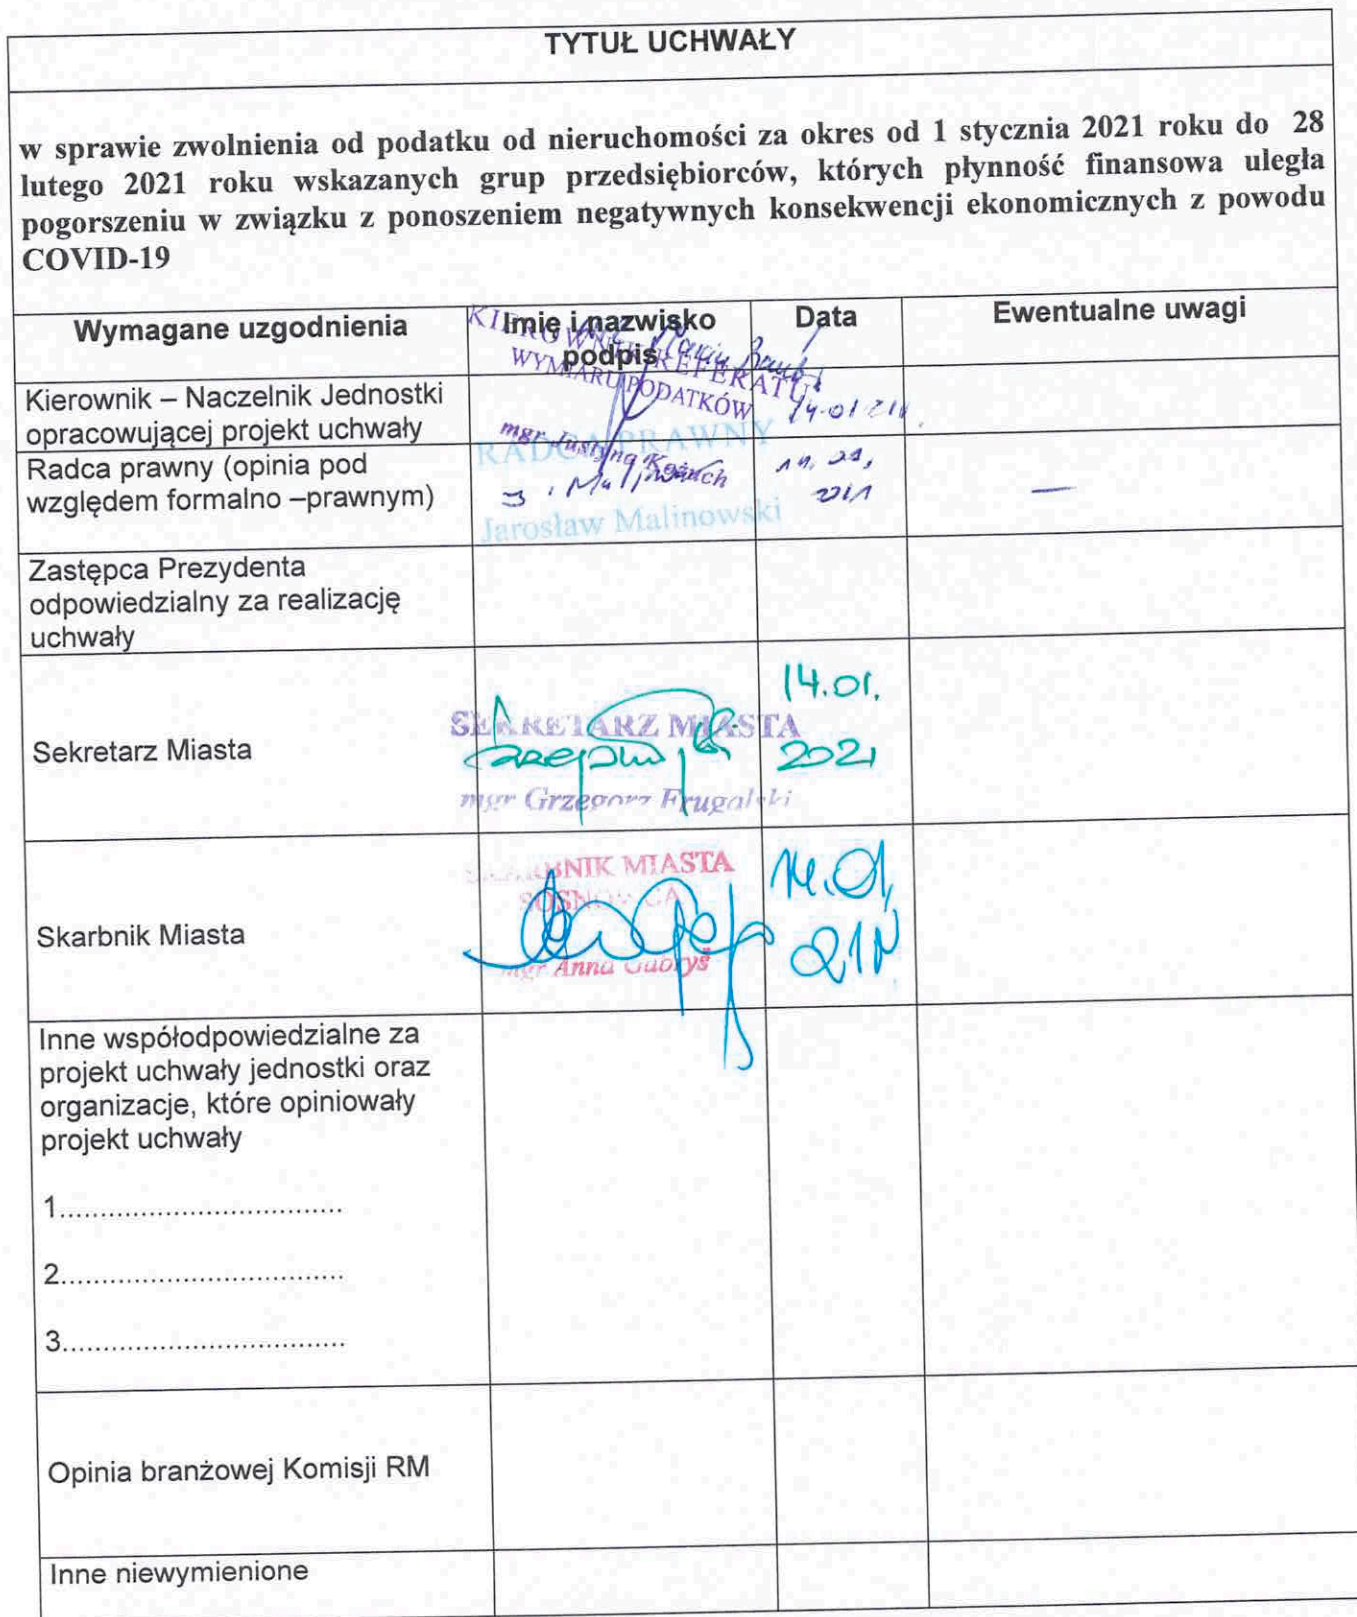 TYTUŁ UCHWAŁY
w sprawie zwolnienia od podatku od nieruchomości za okres od 1 stycznia 2021 roku do 28
lutego 2021 roku wskazanych grup przedsiębiorców, których płynność finansowa uległa
pogorszeniu w związku z ponoszeniem negatywnych konsekwencji ekonomicznych z powodu
COVID-19
Wymagane uzgodnienia
Imię i nazwisko
podpis
Data
Ewentualne uwagi
KIEROWNIK REFERATU
WYMIARU PODATKÓW
mgr Justyna
Kierownik – Naczelnik Jednostki
opracowującej projekt uchwały
14.01.21r
Radca prawny (opinia pod
względem formalno –prawnym)
RADCA PRAWNY
Jarosław Malinowski
—
Zastępca Prezydenta
odpowiedzialny za realizację
uchwały
Sekretarz Miasta
SEKRETARZ MIASTA
mgr Grzegorz Frugalski
14.01.
2021
Skarbnik Miasta
SKARBNIK MIASTA
SOSNOWCA
mgr Anna Gabryś
14.01.
21r
Inne współodpowiedzialne za
projekt uchwały jednostki oraz
organizacje, które opiniowały
projekt uchwały
1..................................
2..................................
3..................................
Opinia branżowej Komisji RM
Inne niewymienione